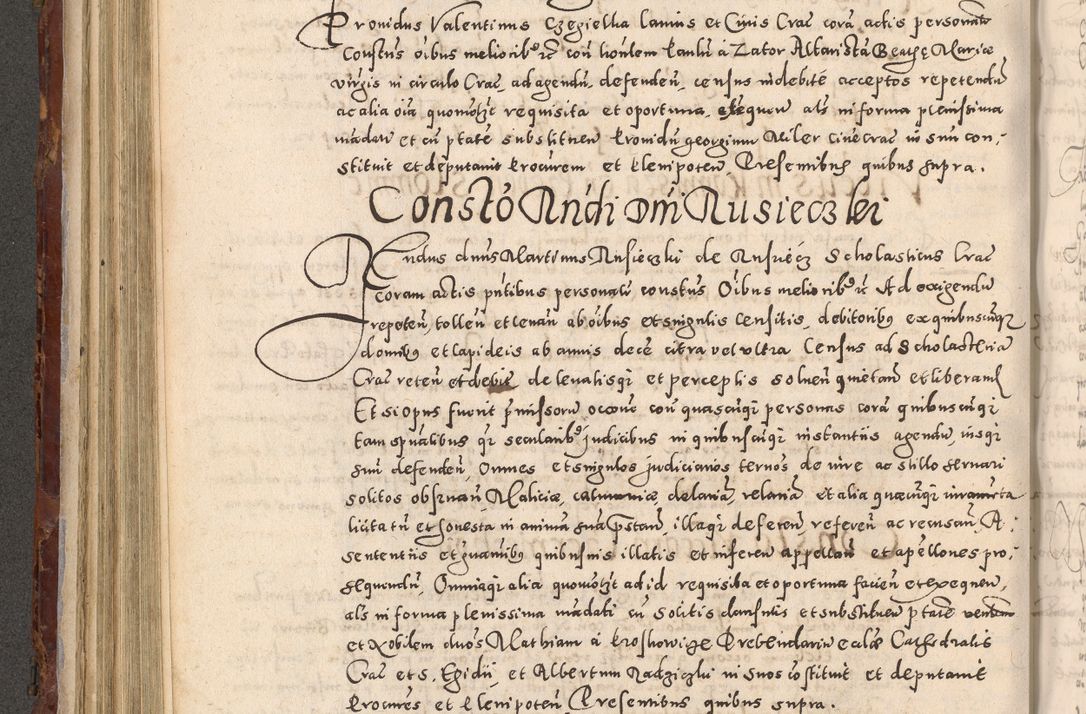 Providus Valentinus Czegielka lanius et Civis Crac̃ corã actis personalr̃
Constus oĩbus meliorib9 ꝛc coñ honlem Paulũ á Zator Altaristã Beatę Mariæ
virgis in circulo Crac̃ ad agendũ, defendeñ, census indebite acceptos repetendũ
ac alia oĩa quomõlt requisita et oportuna exequeñ als in forma plenissima
mãdati et cũ ptate substitueñ Providũ georgium Miler civẽ Crac̃ in suũ con:
stituit et deputavit Procurem et Plenipoteñ, Presentibus quibus supra.
Constõ Rndi Dñi Rusieczki
REndus dnus Martinus Rusieczki de Rusiecz Scholasticus Crac̃
coram actis pñtibus personalr̃ constus Oĩbus meliorib9 ꝛc Ad exigendũ
repeteñ tolleñ et levañ ab oĩbus et singulis censitis, debitoribꝯ ex quibuscũqꝫ
domibꝯ et lapideis ab annis decẽ citra vel ultra Census ad Scholasteriã
Crac̃ reteñ et debit̃ de levatisqꝫ et perceptis solueñ quietañ et liberañ
Et si opus fuerit p̃missorũ occõne coñ quascũqꝫ personas corã quibuscũqꝫ
tam spũalibus qꝫ secularib9 judicibus in quibuscũqꝫ instantiis agendũ iusqꝫ
suũ defendeñ, Omnes et singulos judiciarios ternos de iure ac stillo servari
solitos observañ Maliciæ, calumniæ, delatiã, velaniã et alia quæcũqꝫ iuramẽta
licita tñ et honesta in animã suã pstañ, illaqꝫ defereñ refereñ ac recusañ, A
sententiis et gravaĩbꝯ quibusuis illatis et infereñ appellañ et apellones pro:
sequendũ, Omniaqꝫ alia quomõlt ad id requisita et oportuna facieñ et exequeñ,
als in forma plenissima mãdati cũ solitis clausulis et substitueñ ptate venlem
et Nobilem dnõs Mathiam á Proskowige Prebendariũ ecclæ Cathedralis
Crac̃ et S. Egidii, et Albertum Radziczki in suos cõstituit et deputavit
Procures et Plenipoteñ Presentibus quibus supra.